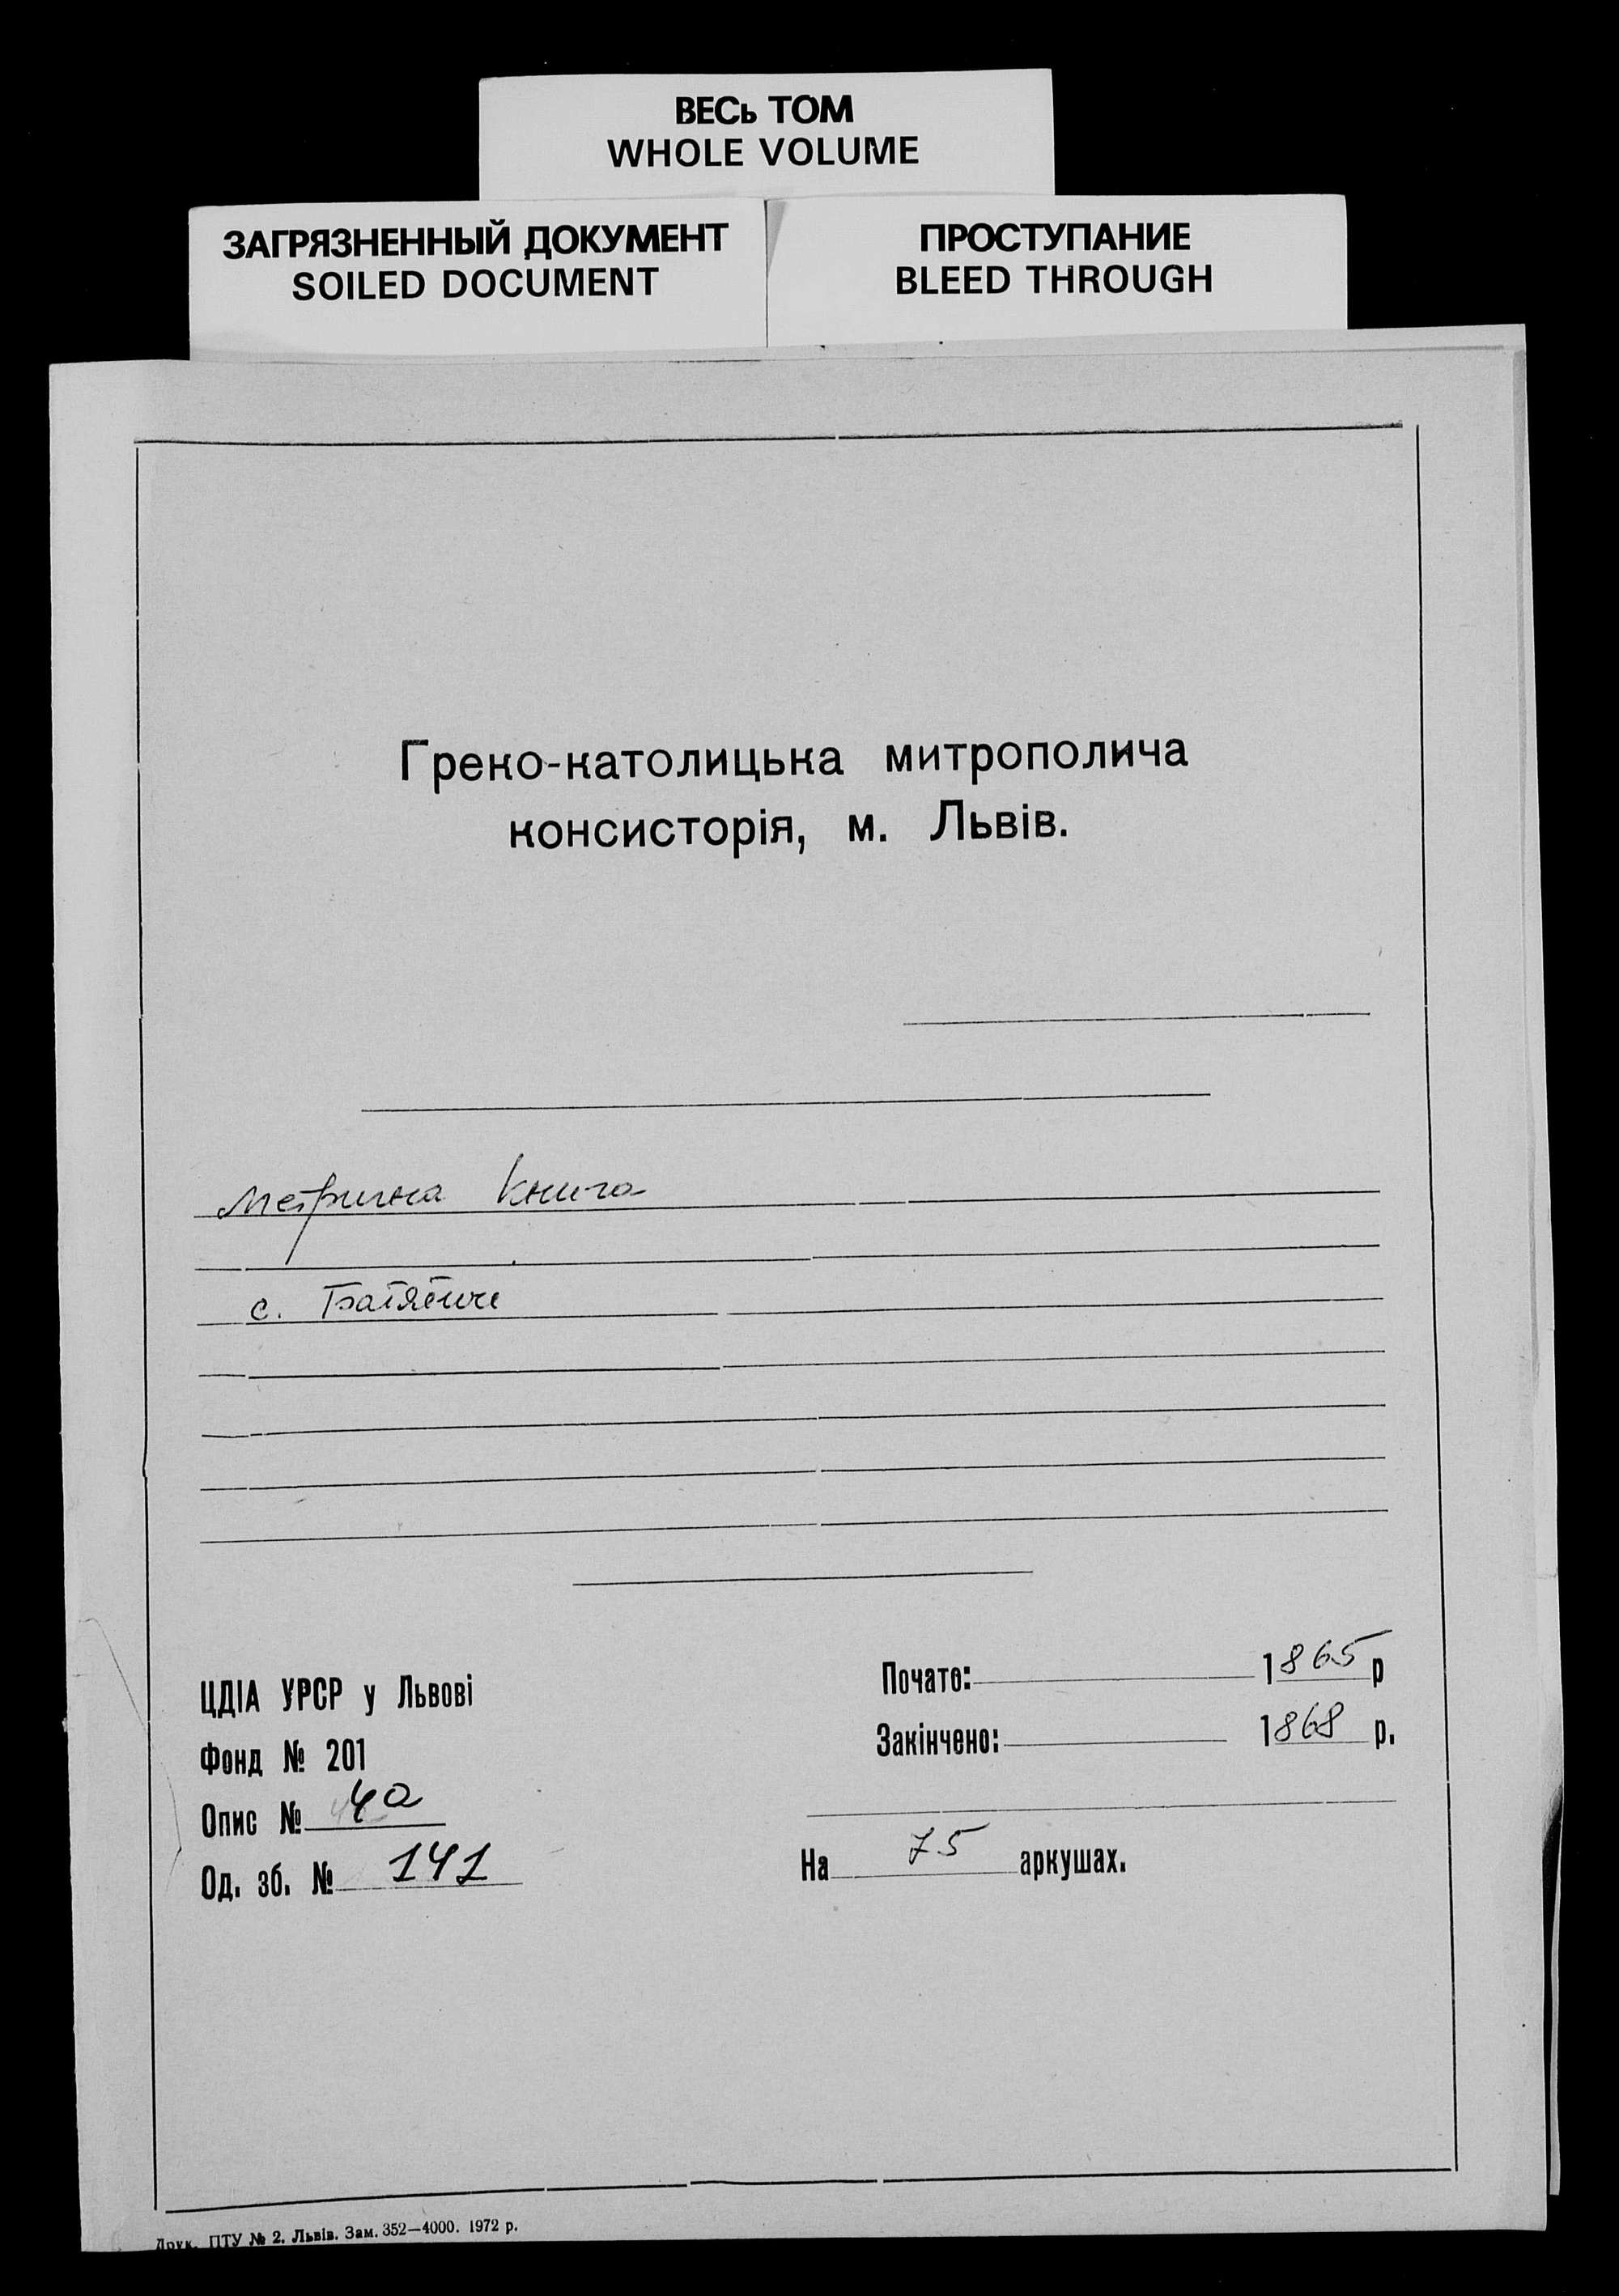 ВЕСЬ ТОМ
WHOLE VOLUME
ЗАГРЯЗНЕННЫЙ ДОКУМЕНТ
SOILED DOCUMENT
ПРОСТУПАНИЕ
BLEED THROUGH
Греко-католицька митрополича
консисторія, м. Львів.
Метрична книга
с. Батятичі
ЦДІА УРСР у Львові
Фонд № 201
Опис № 4а
Од. зб. № 141
Почато: 1865 р
Закінчено: 1868 р.
На 75 аркушах.
Друк. ПТУ № 2. Львів. Зам. 352—4000. 1972 р.